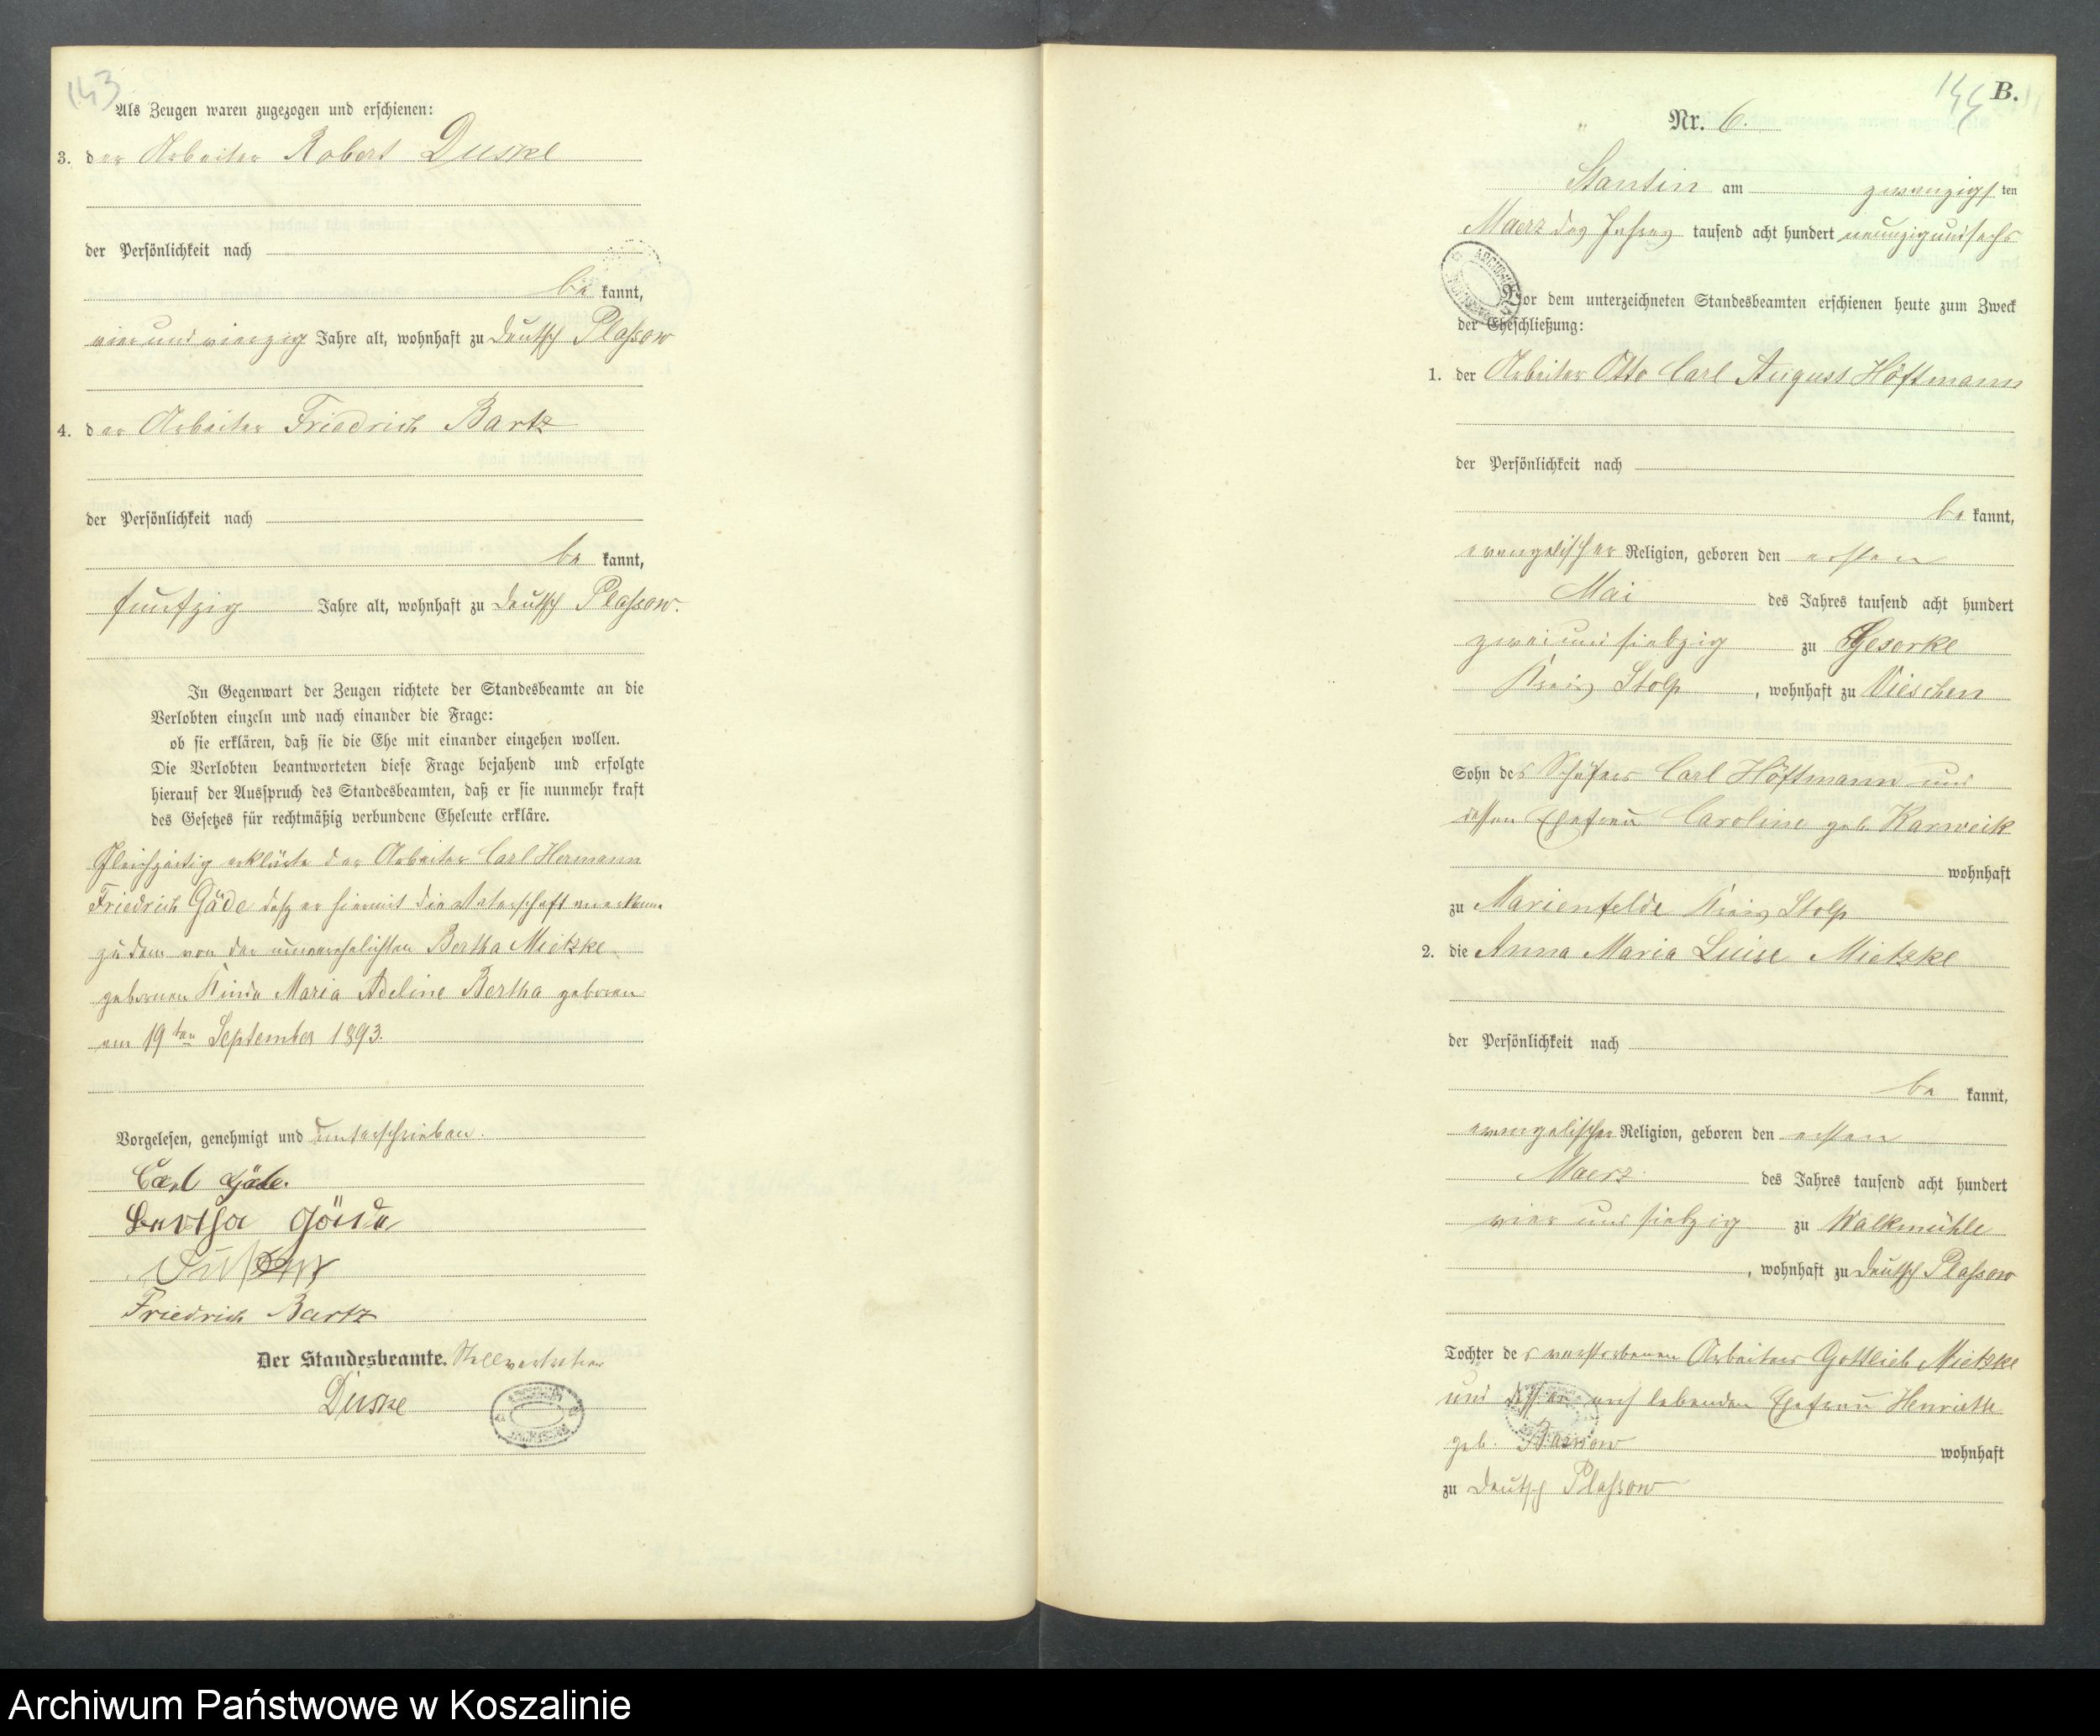 143
Als Zeugen waren zugezogen und erschienen:
3. der Arbeiter Robert Duske
der Persönlichkeit nach
be kannt,
vier und vierzig Jahre alt, wohnhaft zu Deutsch Plassow
4. der Arbeiter Friedrich Bartz
der Persönlichkeit nach
be kannt,
funfzig Jahre alt, wohnhaft zu Deutsch Plassow.
In Gegenwart der Zeugen richtete der Standesbeamte an die
Verlobten einzeln und nach einander die Frage:
ob sie erklären, daß sie die Ehe mit einander eingehen wollen.
Die Verlobten beantworteten diese Frage bejahend und erfolgte
hierauf der Ausspruch des Standesbeamten, daß er sie nunmehr kraft
des Gesetzes für rechtmäßig verbundene Eheleute erkläre.
Gleichzeitig erklärte der Arbeiter Carl Hermann
Friedrich Gäde daß er hiermit die Vaterschaft anerkenne
zu dem von der unverehelichten Bertha Mietzke
geborenen Kinde Maria Adeline Bertha geboren
am 19ten September 1893.
Vorgelesen, genehmigt und unterschrieben.
Carl Gäde.
Bertha Gäde
Friedrich Bartz
Der Standesbeamte. Stellvertreter
Duske
144 B.
Nr. 6.
Stantin am zwanzigsten
Maerz des Jahres tausend acht hundert neunzig und sechs
Vor dem unterzeichneten Standesbeamten erschienen heute zum Zweck
der Eheschließung:
1. der Arbeiter Otto Carl August Höftmann
der Persönlichkeit nach
be kannt,
evangelischer Religion, geboren den ersten
Mai des Jahres tausend acht hundert
zwei und siebzig zu Gesorke
Kreis Stolp, wohnhaft zu Vieschen
Sohn des Schäfers Carl Höftmann und
dessen Ehefrau Caroline geb. Karweik
wohnhaft
zu Marienfelde Kreis Stolp
2. die Anna Maria Luise Mietzke
der Persönlichkeit nach
be kannt,
evangelischer Religion, geboren den ersten
Maerz des Jahres tausend acht hundert
vier und siebzig zu Walkmühle
, wohnhaft zu Deutsch Plassow
Tochter des verstorbenen Arbeiters Gottlieb Mietzke
und dessen noch lebenden Ehefrau Henriette
geb. wohnhaft
zu Deutsch Plassow
Archiwum Państwowe w Koszalinie